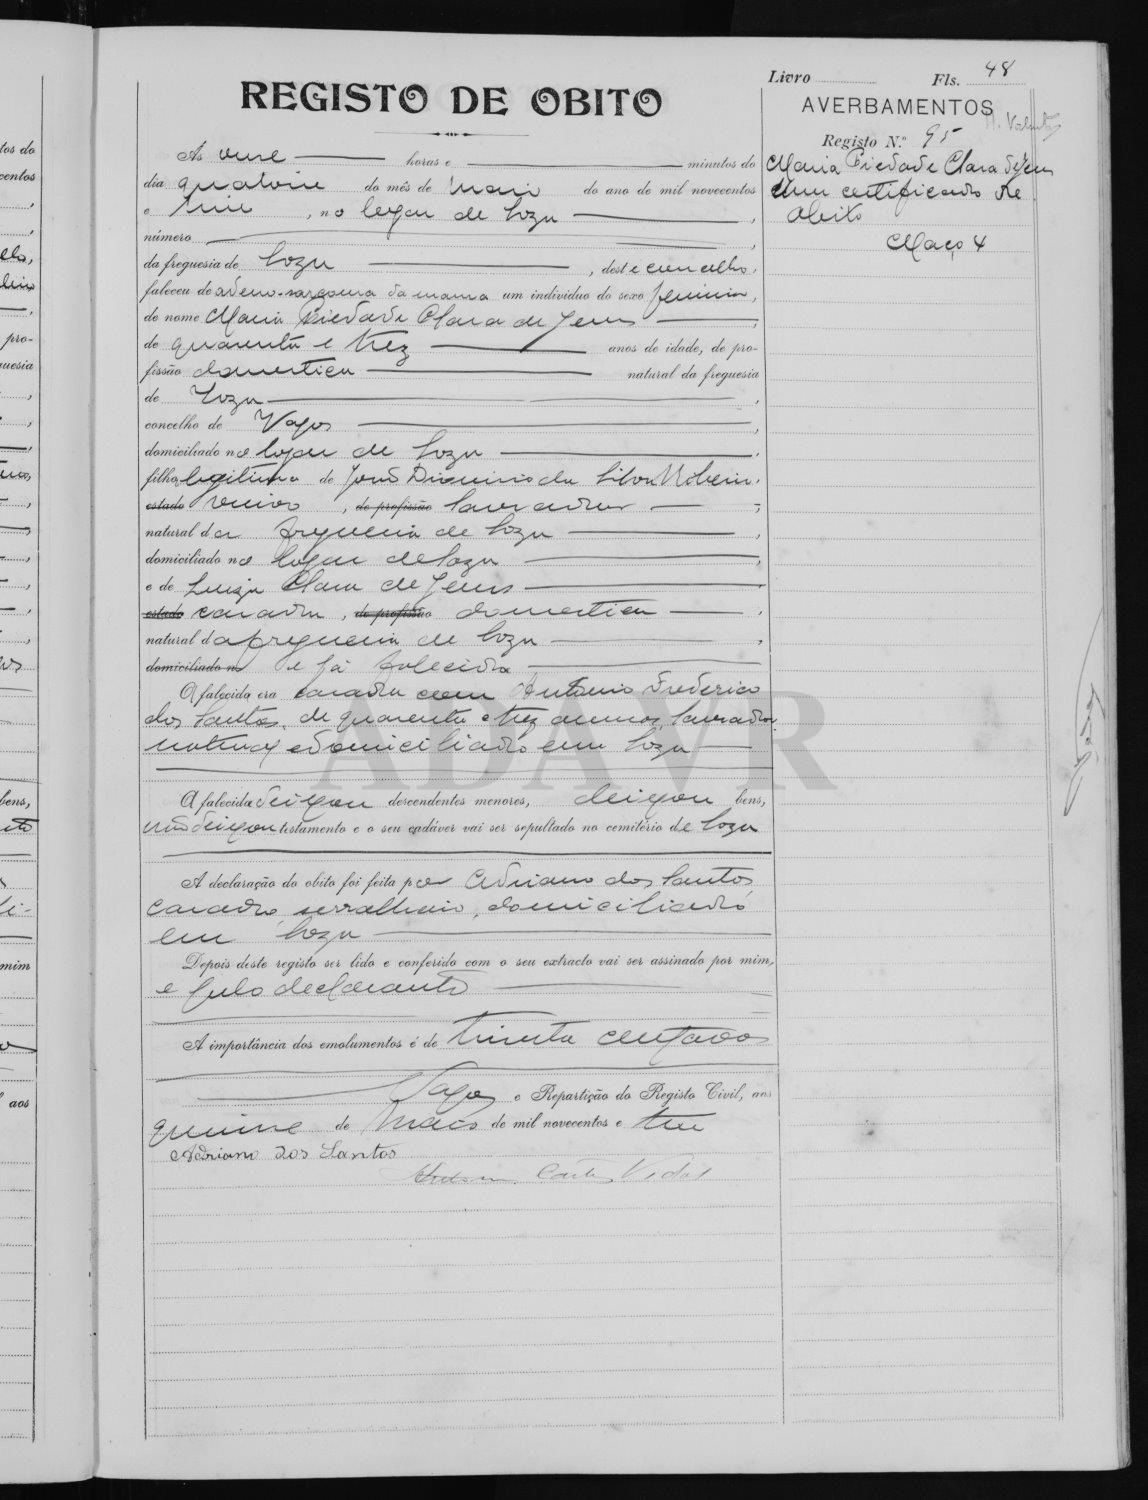 Livro Fls. 48
REGISTO DE OBITO
AVERBAMENTOS
Registo N.º 95
Maria Piedade Clara de Jesus
Um certificado de
obito
Maço 4
As onze horas e minutos do
dia quatorze do mês de Maio do ano de mil novecentos
e , no logar de Soza ,
número ,
da freguesia de Soza , deste concelho,
faleceu de adeno-sarcoma da mama um individuo do sexo feminino,
de nome Maria Piedade Clara de Jesus ,
de quarenta e trez anos de idade, de pro-
fissão domestica natural da freguesia
de Soza ,
concelho de Vagos ,
domiciliado no logar de Soza ,
filha legitima de João da Silva ,
estado viuvo , de profissão lavrador ,
natural da freguesia de Soza ,
domiciliado no logar de Soza ,
e de Luiza Clara de Jesus ,
estado casada , de profissão domestica ,
natural da freguesia de Soza ,
domiciliado n e já falecida
A falecida era casada com Antonio Frederico
dos Santos, de quarenta e trez annos, lavrador
natural e domiciliado em Soza
ADAVR
A falecida deixou descendentes menores, deixou bens,
não deixou testamento e o seu cadáver vai ser sepultado no cemitério de Soza
A declaração do obito foi feita por Adriano dos Santos
casado, serralheiro, domiciliado
em Soza
Depois deste registo ser lido e conferido com o seu extracto vai ser assinado por mim,
e pelo declarante
A importância dos emolumentos é de trinta centavos
Vagos e Repartição do Registo Civil, aos
quinze de Maio de mil novecentos e
Adriano dos Santos
Vidal